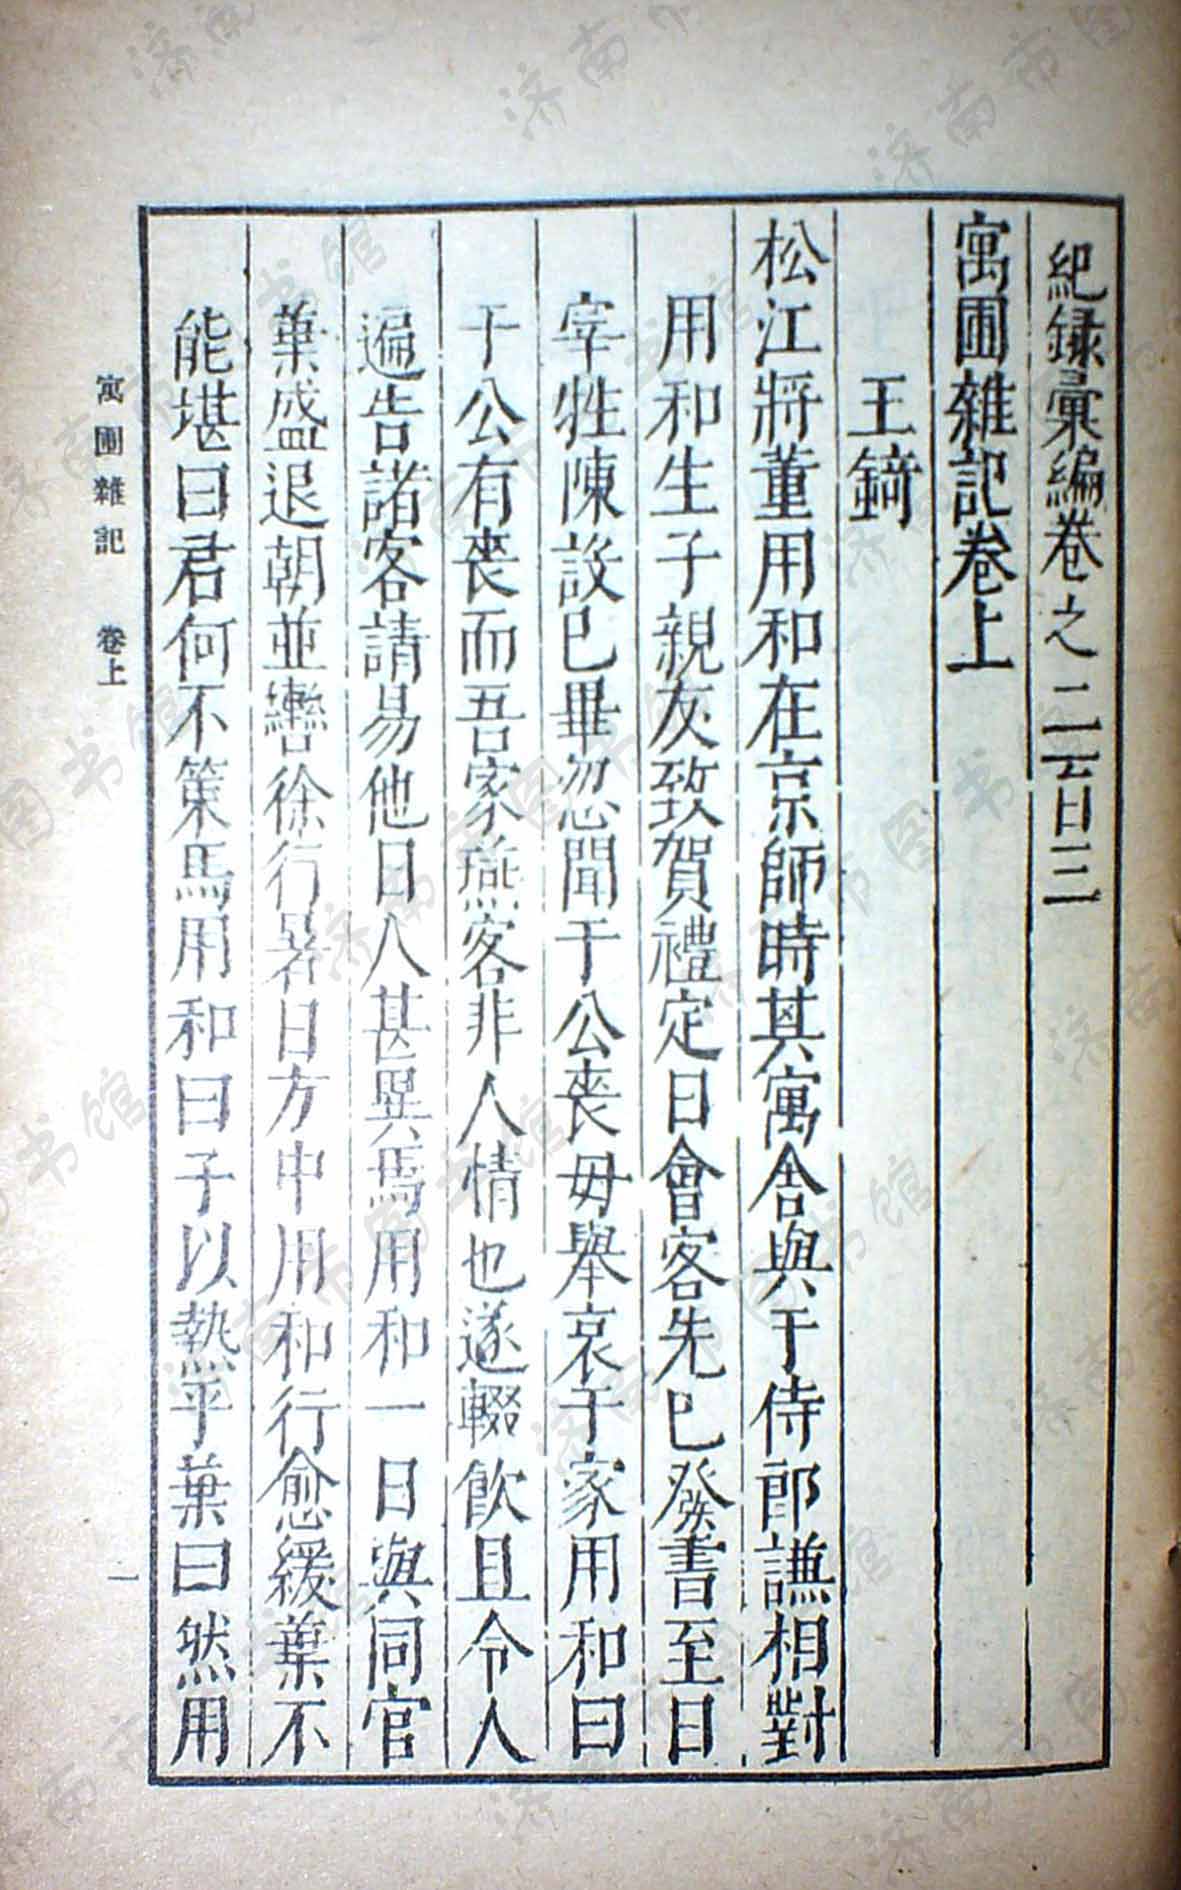 紀録彙編卷之二百三
寓圃雜記卷上
王錡
松江將董用和在京師時其寓舍與于侍郎謙相對
用和生子親友致賀禮定日會客先巳發書至日
宰牲陳設巳畢忽聞于公喪毋舉哀于家用和曰
于公有喪而吾家燕客非人情也遂輟飲且令人
遍告諸客請易他日人甚異焉用和一日與同官
葉盛退朝並轡徐行暑日方中用和行愈緩葉不
能堪曰君何不策馬用和曰子以熱乎葉曰然用
寓圃雜記 卷上
一
济南市图书馆